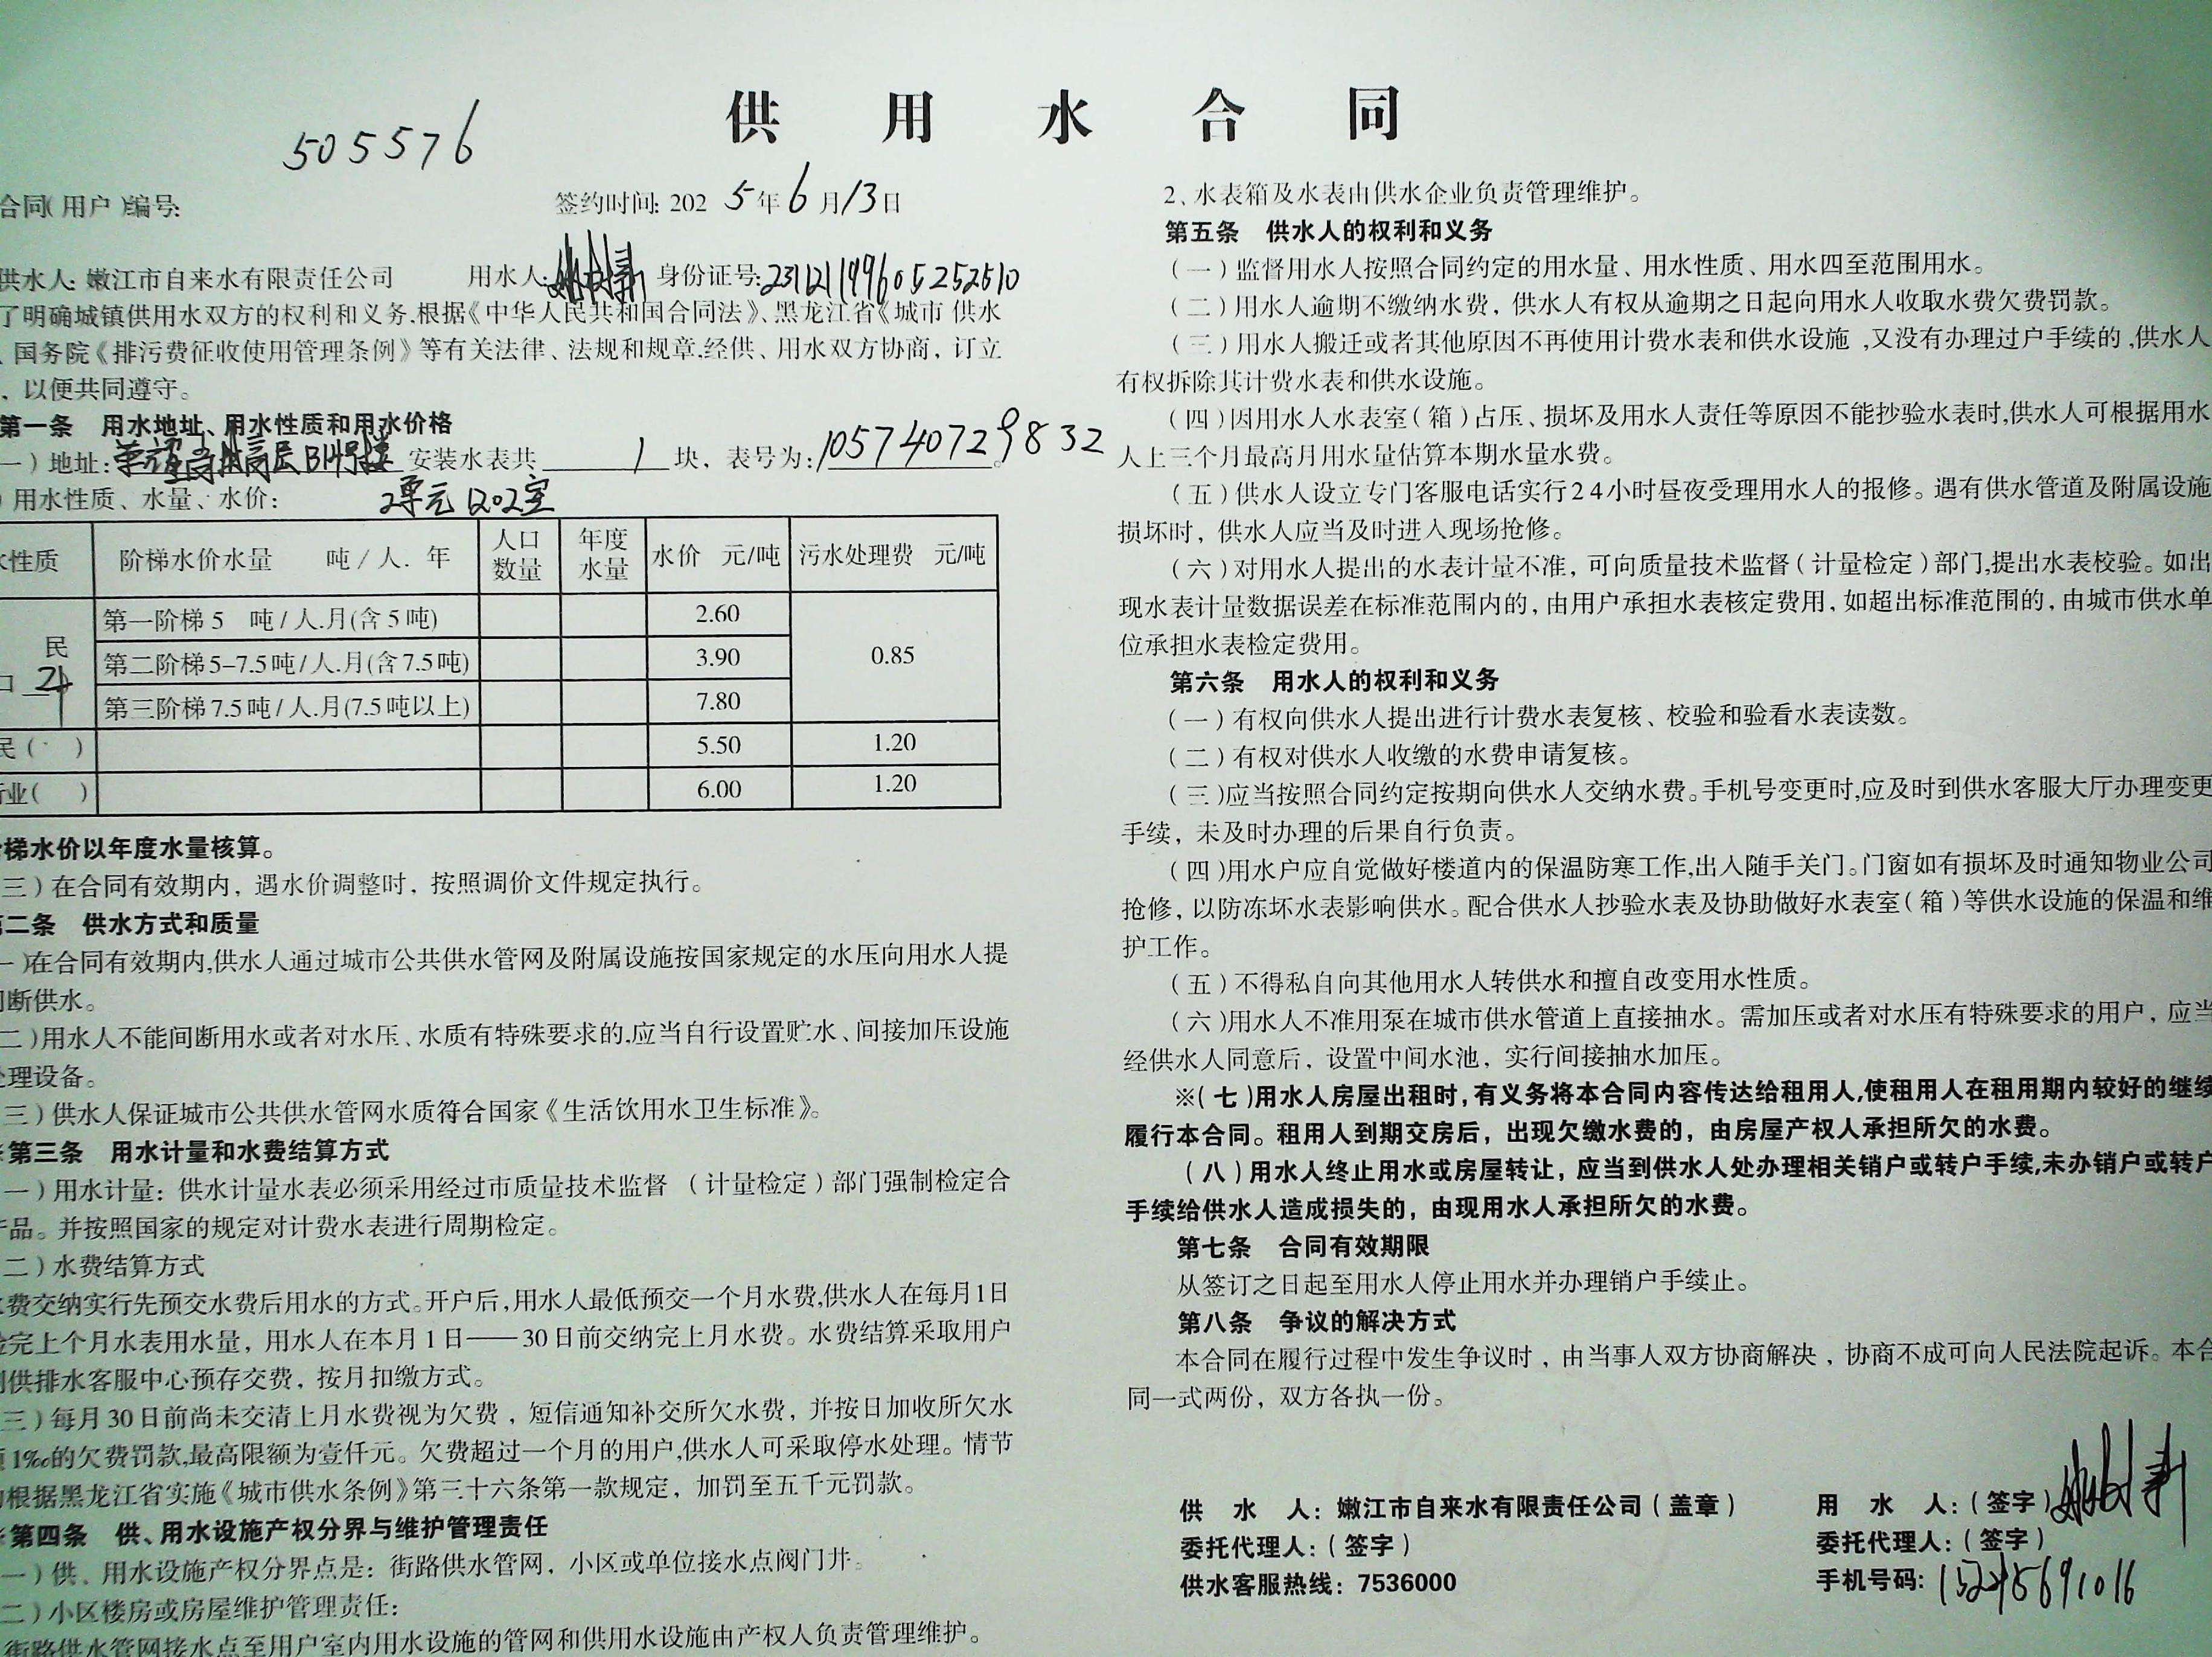 供用水合同
505576
合同(用户)编号:
签约时间: 2025年6月13日
供水人: 嫩江市自来水有限责任公司 用水人: 身份证号:231121199605252510
了明确城镇供用水双方的权利和义务,根据《中华人民共和国合同法》、黑龙江省《城市 供水
、国务院《排污费征收使用管理条例》等有关法律、法规和规章,经供、用水双方协商，订立
，以便共同遵守。
第一条 用水地址、用水性质和用水价格
一）地址: 高层B14号楼 安装水表共 1 块，表号为: 105740729832。
）用水性质、水量、水价： 2单元1202室
水性质 阶梯水价水量 吨/人.年 人口数量 年度水量 水价 元/吨 污水处理费 元/吨
民
口
第一阶梯5 吨/人.月(含5吨) 2.60 0.85
第二阶梯5-7.5吨/人.月(含7.5吨) 3.90
第三阶梯7.5吨/人.月(7.5吨以上) 7.80
民( ) 5.50 1.20
行业( ) 6.00 1.20
梯水价以年度水量核算。
三）在合同有效期内，遇水价调整时，按照调价文件规定执行。
第二条 供水方式和质量
一)在合同有效期内,供水人通过城市公共供水管网及附属设施按国家规定的水压向用水人提
间断供水。
二)用水人不能间断用水或者对水压、水质有特殊要求的,应当自行设置贮水、间接加压设施
处理设备。
三）供水人保证城市公共供水管网水质符合国家《生活饮用水卫生标准》。
※第三条 用水计量和水费结算方式
一）用水计量：供水计量水表必须采用经过市质量技术监督（计量检定）部门强制检定合
产品。并按照国家的规定对计费水表进行周期检定。
二）水费结算方式
水费交纳实行先预交水费后用水的方式。开户后,用水人最低预交一个月水费,供水人在每月1日
验完上个月水表用水量，用水人在本月1日——30日前交纳完上月水费。水费结算采取用户
到供排水客服中心预存交费，按月扣缴方式。
三）每月30日前尚未交清上月水费视为欠费，短信通知补交所欠水费，并按日加收所欠水
1‰的欠费罚款,最高限额为壹仟元。欠费超过一个月的用户,供水人可采取停水处理。情节
根据黑龙江省实施《城市供水条例》第三十六条第一款规定，加罚至五千元罚款。
※第四条 供、用水设施产权分界与维护管理责任
一）供、用水设施产权分界点是：街路供水管网，小区或单位接水点阀门井。
二）小区楼房或房屋维护管理责任：
街路供水管网接水点至用户室内用水设施的管网和供用水设施由产权人负责管理维护。
2、水表箱及水表由供水企业负责管理维护。
第五条 供水人的权利和义务
（一）监督用水人按照合同约定的用水量、用水性质、用水四至范围用水。
（二）用水人逾期不缴纳水费，供水人有权从逾期之日起向用水人收取水费欠费罚款。
（三）用水人搬迁或者其他原因不再使用计费水表和供水设施,又没有办理过户手续的,供水人
有权拆除其计费水表和供水设施。
（四）因用水人水表室（箱）占压、损坏及用水人责任等原因不能抄验水表时,供水人可根据用水
人上三个月最高月用水量估算本期水量水费。
（五）供水人设立专门客服电话实行24小时昼夜受理用水人的报修。遇有供水管道及附属设施
损坏时，供水人应当及时进入现场抢修。
（六）对用水人提出的水表计量不准，可向质量技术监督（计量检定）部门,提出水表校验。如出
现水表计量数据误差在标准范围内的，由用户承担水表核定费用，如超出标准范围的，由城市供水单
位承担水表检定费用。
第六条 用水人的权利和义务
（一）有权向供水人提出进行计费水表复核、校验和验看水表读数。
（二）有权对供水人收缴的水费申请复核。
（三）应当按照合同约定按期向供水人交纳水费。手机号变更时,应及时到供水客服大厅办理变更
手续，未及时办理的后果自行负责。
（四）用水户应自觉做好楼道内的保温防寒工作,出入随手关门。门窗如有损坏及时通知物业公司
抢修，以防冻坏水表影响供水。配合供水人抄验水表及协助做好水表室（箱）等供水设施的保温和维
护工作。
（五）不得私自向其他用水人转供水和擅自改变用水性质。
（六）用水人不准用泵在城市供水管道上直接抽水。需加压或者对水压有特殊要求的用户，应当
经供水人同意后，设置中间水池，实行间接抽水加压。
※（七）用水人房屋出租时,有义务将本合同内容传达给租用人,使租用人在租用期内较好的继续
履行本合同。租用人到期交房后，出现欠缴水费的，由房屋产权人承担所欠的水费。
（八）用水人终止用水或房屋转让，应当到供水人处办理相关销户或转户手续,未办销户或转户
手续给供水人造成损失的，由现用水人承担所欠的水费。
第七条 合同有效期限
从签订之日起至用水人停止用水并办理销户手续止。
第八条 争议的解决方式
本合同在履行过程中发生争议时，由当事人双方协商解决，协商不成可向人民法院起诉。本合
同一式两份，双方各执一份。
供水人：嫩江市自来水有限责任公司（盖章） 用水人：（签字）
委托代理人：（签字） 委托代理人：（签字）
供水客服热线：7536000 手机号码: